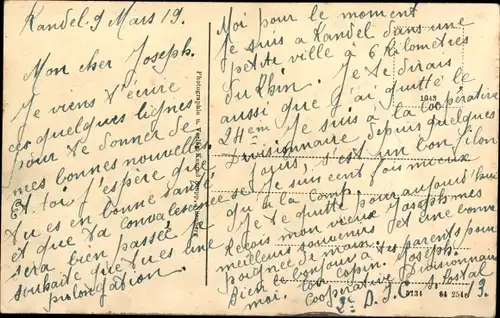 Kandel 9 Mars 19.
Mon cher Joseph.
Je viens t'écrire
ces quelques lignes
pour te donner de
mes bonnes nouvelles
Et toi j'espère que
tu es en bonne santé
et que ta convalescence se
sera bien passée. Je
souhaite que tu es une
prolongation.
Moi pour le moment
Je suis a Kandel dans une
petite ville à 6 kilomètres
du Rhin. Je te dirais
aussi que j'ai quitté le
24em Je suis a la Coopérative
Divisionnaire depuis quelques
jours, s'est un bon filon
Je suis cent fois mieux
qu'a la Comp.
Je te quitte pour aujourd'hui
Reçois mon vieux Joseph mes
meilleurs souvenirs et une bonne
poignée de main. tes parents pour
Bien le bonjour a
moi. ton copin. Joseph.
Coopérative Divisionnaire
2e D. I. C. S. Postal
13.
1942
5131 84 254
Photographie u. Verlag